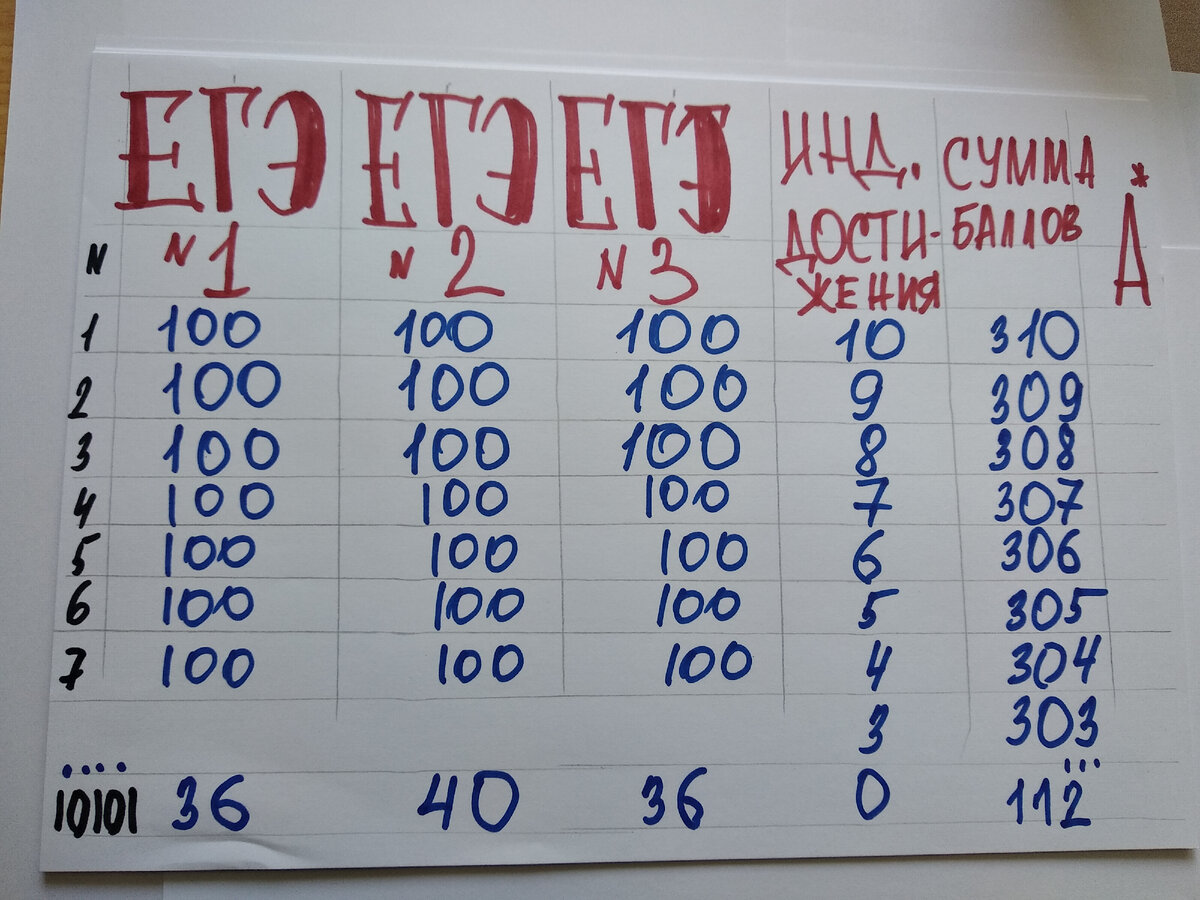 ЕГЭ ЕГЭ ЕГЭ ИНД. СУММА *
N N1 N2 N3 ДОСТИ- БАЛЛОВ А
ЖЕНИЯ
1 100 100 100 10 310
2 100 100 100 9 309
3 100 100 100 8 308
4 100 100 100 7 307
5 100 100 100 6 306
6 100 100 100 5 305
7 100 100 100 4 304
3 303
.... ...
10101 36 40 36 0 112